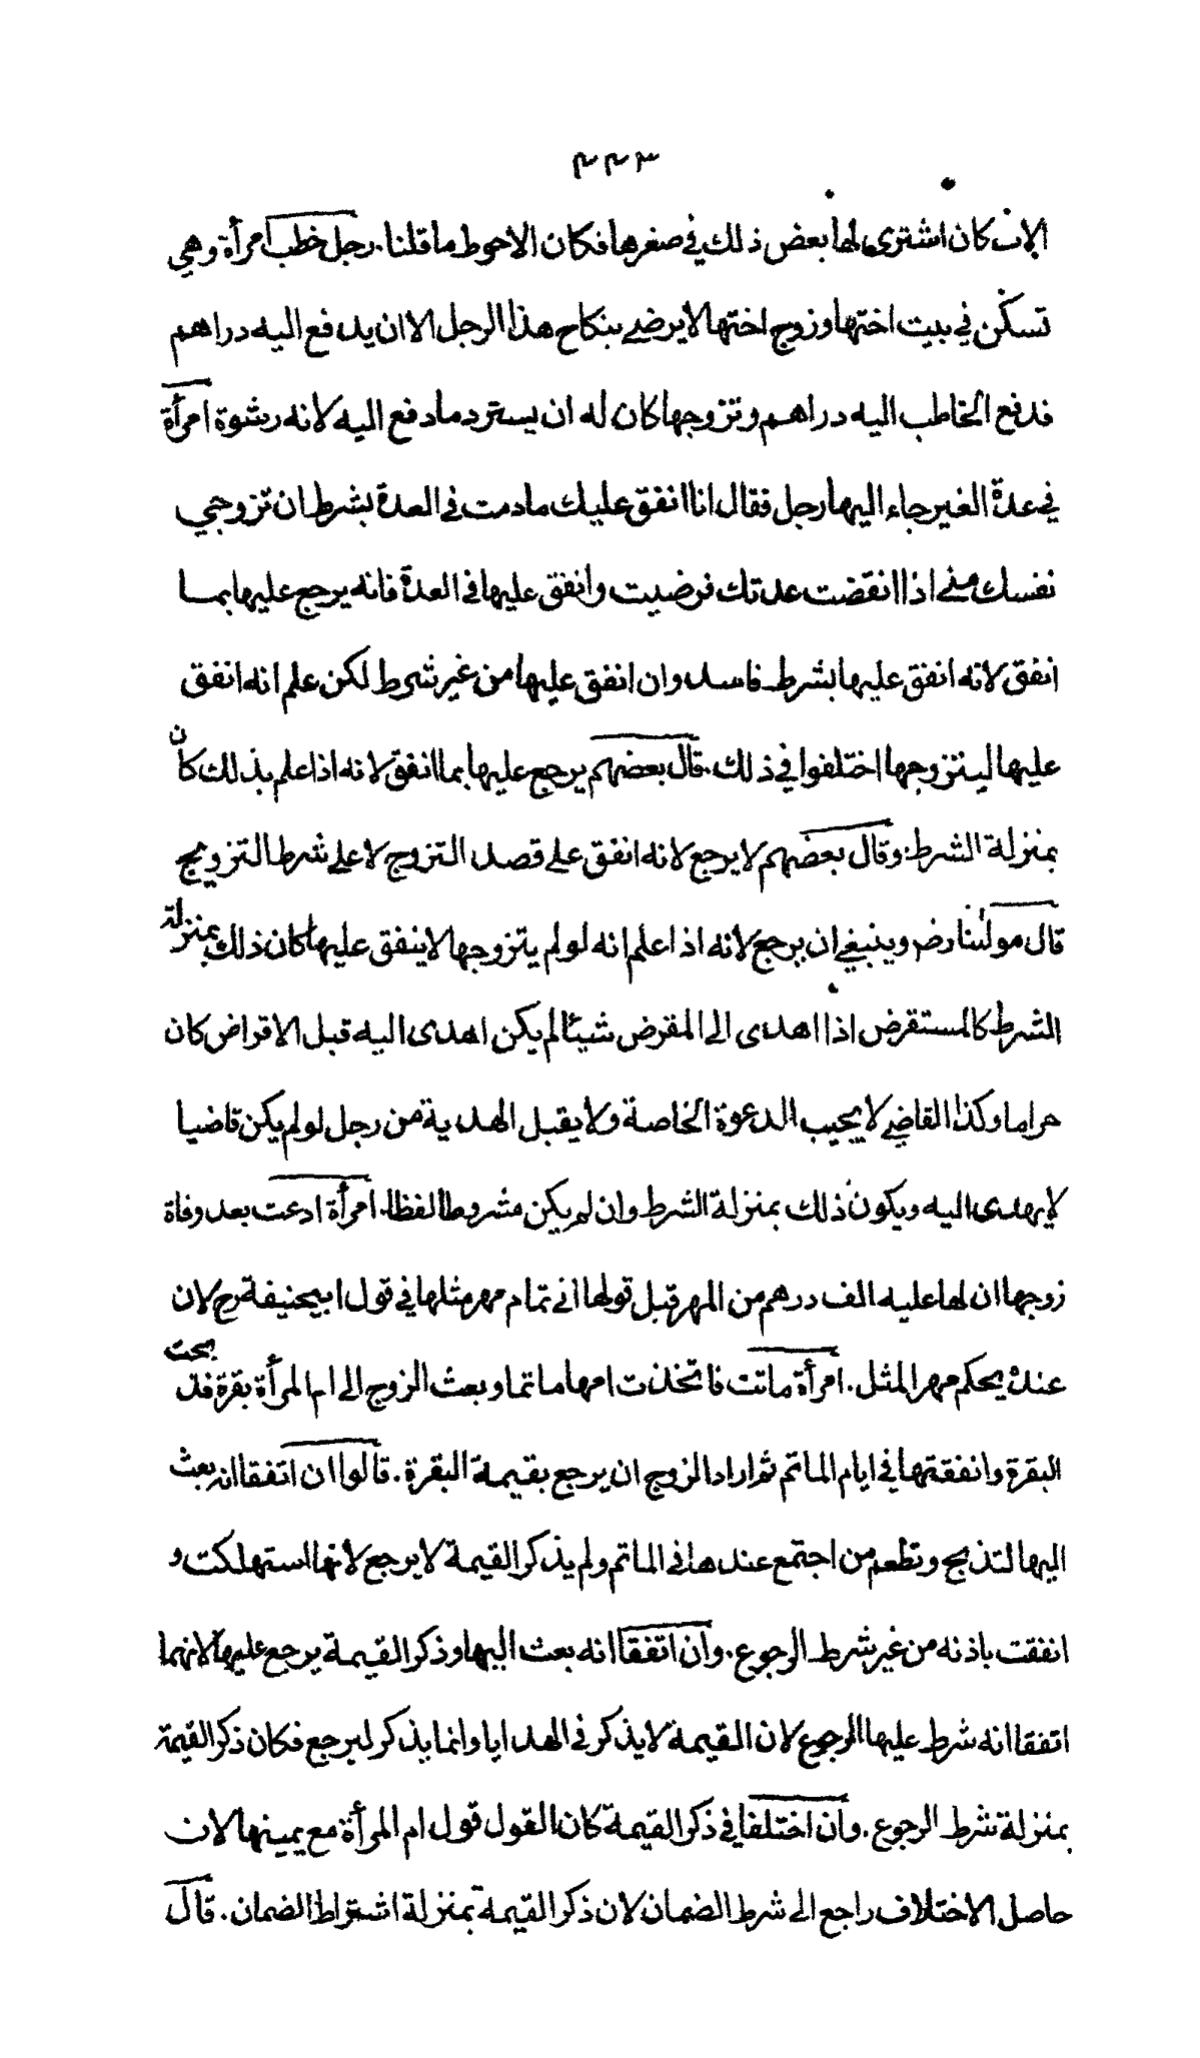 ٤٤٣
الاب كان اشترى لها بعض ذلك في صغرها فكان الاحوط ما قلنا. رجل خطب امرأة وهي
تسكن في بيت اختها وزوج اختها لا يرضى بنكاح هذا الرجل الا ان يدفع اليه دراهم
فدفع الخاطب اليه دراهم وتزوجها كان له ان يسترد ما دفع اليه لانه رشوة امرأة
في عدة الغير جاء اليها رجل فقال انا انفق عليك ما دمت في العدة بشرط ان تزوجي
نفسك مني اذا انقضت عدتك فرضيت وانفق عليها في العدة فانه يرجع عليها بما
انفق لانه انفق عليها بشرط فاسد وان انفق عليها من غير شرط لكن علم انه انفق
عليها ليتزوجها اختلفوا في ذلك. قال بعضهم يرجع عليها بما انفق لانه اذا علم بذلك كان
بمنزلة الشرط. وقال بعضهم لا يرجع لانه انفق على قصد التزوج لا على شرط التزويج
قال مولانا رض وينبغي ان يرجع لانه اذا علم انه لو لم يتزوجها لا ينفق عليها كان ذلك بمنزلة
الشرط كالمستقرض اذا اهدى الى المقرض شيئا لم يكن اهدى اليه قبل الاقراض كان
حراما وكذا القاضي لا يجيب الدعوة الخاصة ولا يقبل الهدية من رجل لو لم يكن قاضيا
لا يهدى اليه ويكون ذلك بمنزلة الشرط وان لم يكن مشروطا لفظا. امرأة ادعت بعد وفاة
زوجها ان لها عليه الف درهم من المهر قبل قولها الى تمام مهر مثلها في قول ابيحنيفة رح لان
عنده يحكم مهر المثل. امرأة ماتت فاتخذت امها ماتما وبعث الزوج الى ام المرأة بقرة فذبحت
البقرة وانفقتها في ايام الماتم ثم اراد الزوج ان يرجع بقيمة البقرة. قالوا ان اتفقا انه بعث
اليها لتذبح وتطعم من اجتمع عندها في الماتم ولم يذكر القيمة لا يرجع لانها استهلكت و
انفقت باذنه من غير شرط الرجوع. وان اتفقا انه بعث اليها وذكر القيمة يرجع عليها لانهما
اتفقا انه شرط عليها الرجوع لان القيمة لا يذكر في الهدايا وانما يذكر ليرجع فكان ذكر القيمة
بمنزلة شرط الرجوع. وان اختلفا في ذكر القيمة كان القول قول ام المرأة مع يمينها لان
حاصل الاختلاف راجع الى شرط الضمان لان ذكر القيمة بمنزلة اشتراط الضمان. قال